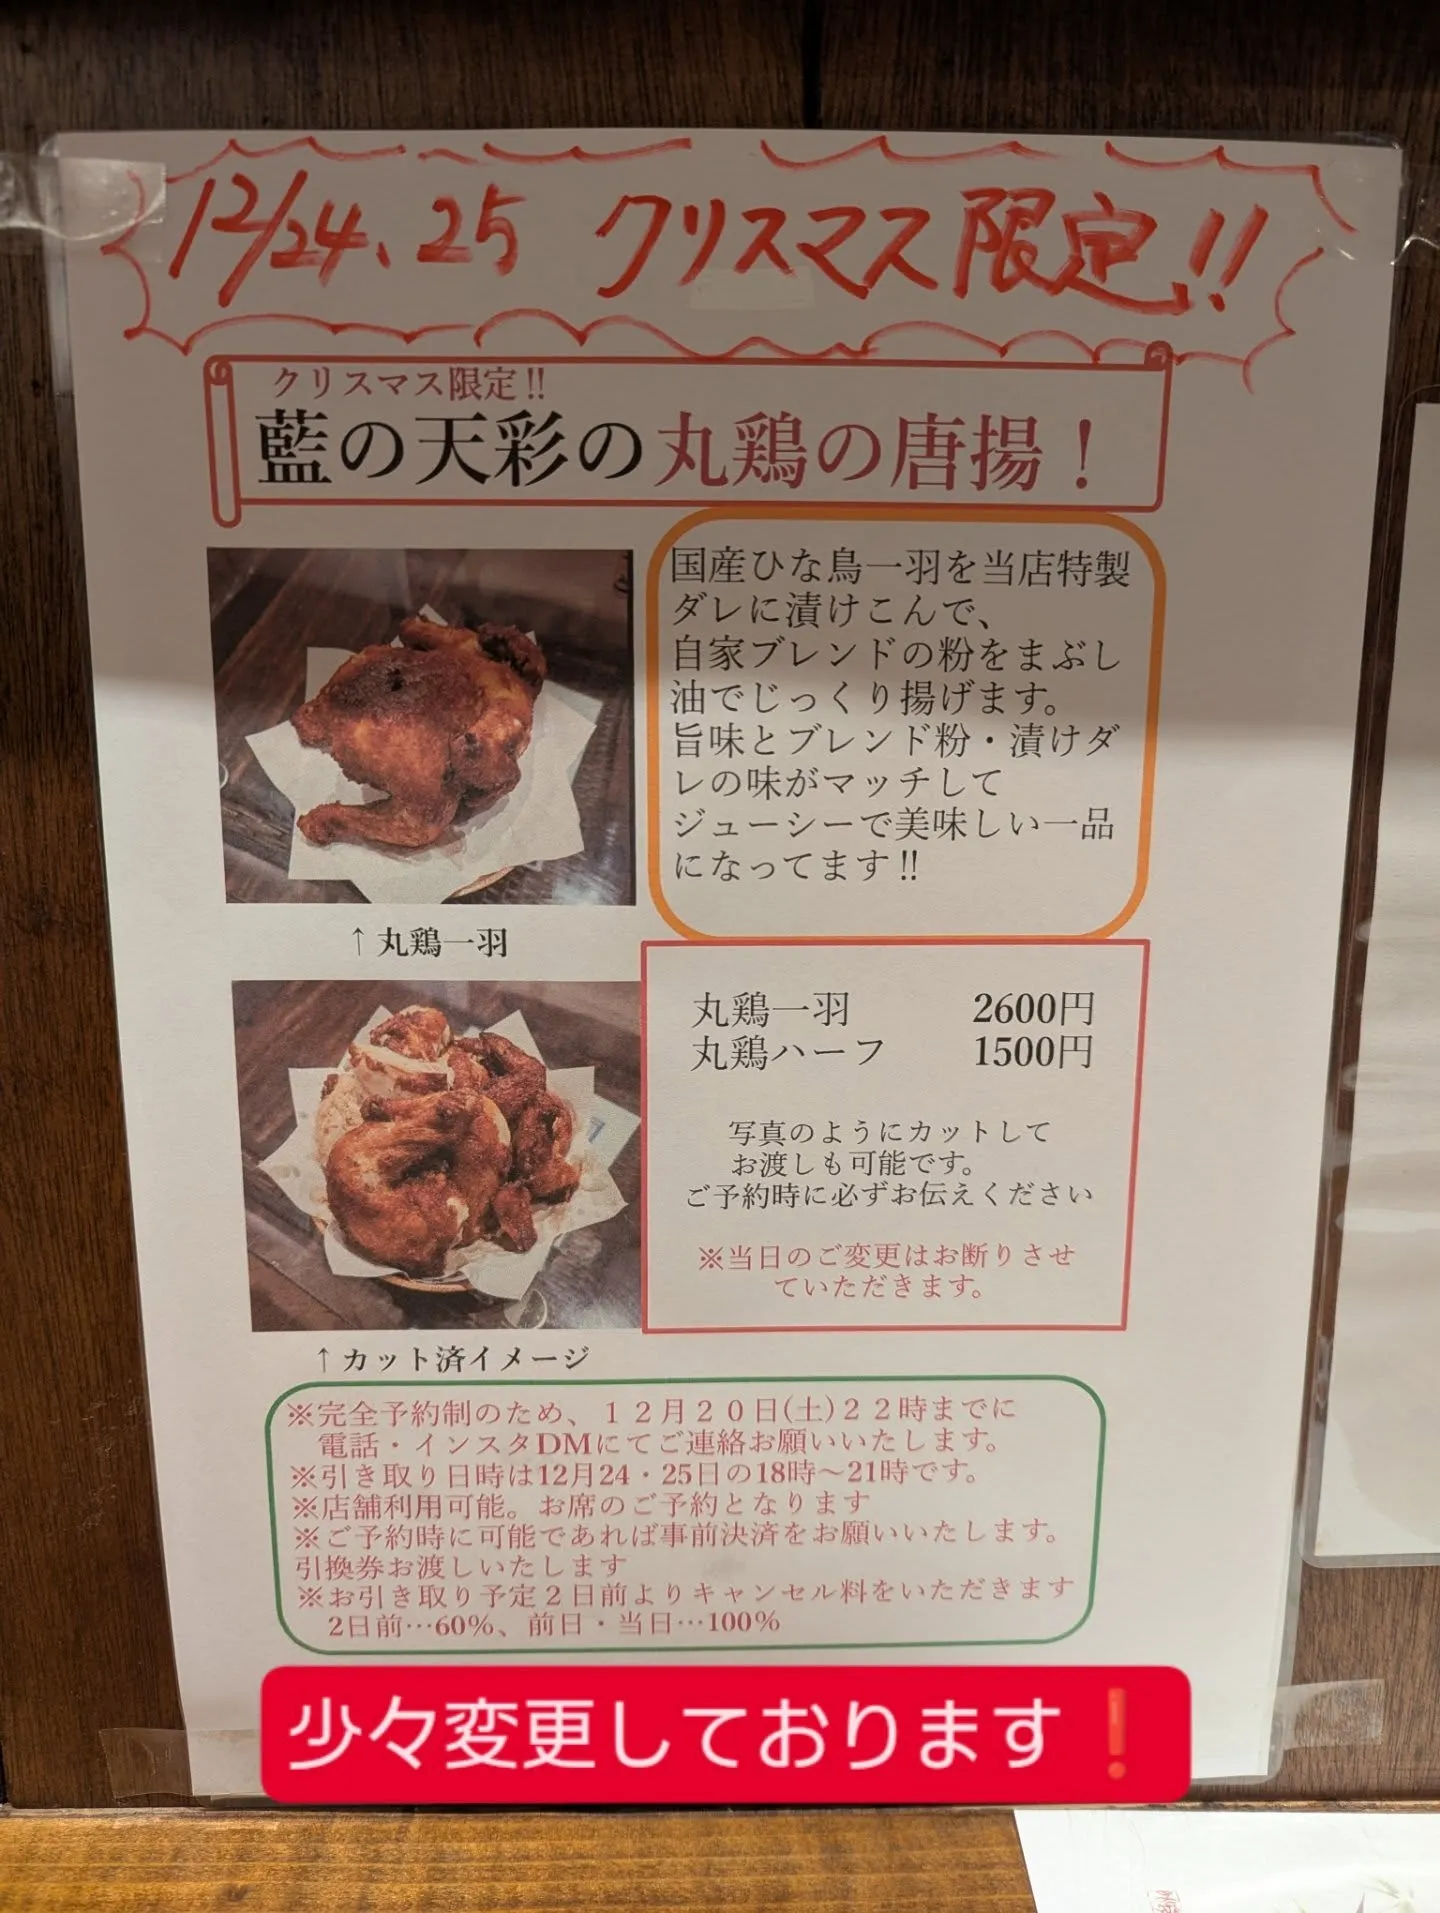 12/24、25 クリスマス限定!!
クリスマス限定!!
藍の天彩の丸鶏の唐揚！
国産ひな鳥一羽を当店特製
ダレに漬けこんで、
自家ブレンドの粉をまぶし
油でじっくり揚げます。
旨味とブレンド粉・漬けダ
レの味がマッチして
ジューシーで美味しい一品
になってます!!
↑丸鶏一羽
丸鶏一羽 2600円
丸鶏ハーフ 1500円
写真のようにカットして
お渡しも可能です。
ご予約時に必ずお伝えください
※当日のご変更はお断りさせ
ていただきます。
↑カット済イメージ
※完全予約制のため、１２月２０日(土)２２時までに
電話・インスタDMにてご連絡お願いいたします。
※引き取り日時は12月24・25日の18時～21時です。
※店舗利用可能。お席のご予約となります
※ご予約時に可能であれば事前決済をお願いいたします。
引換券お渡しいたします
※お引き取り予定２日前よりキャンセル料をいただきます
2日前…60%、前日・当日…100%
少々変更しております❗